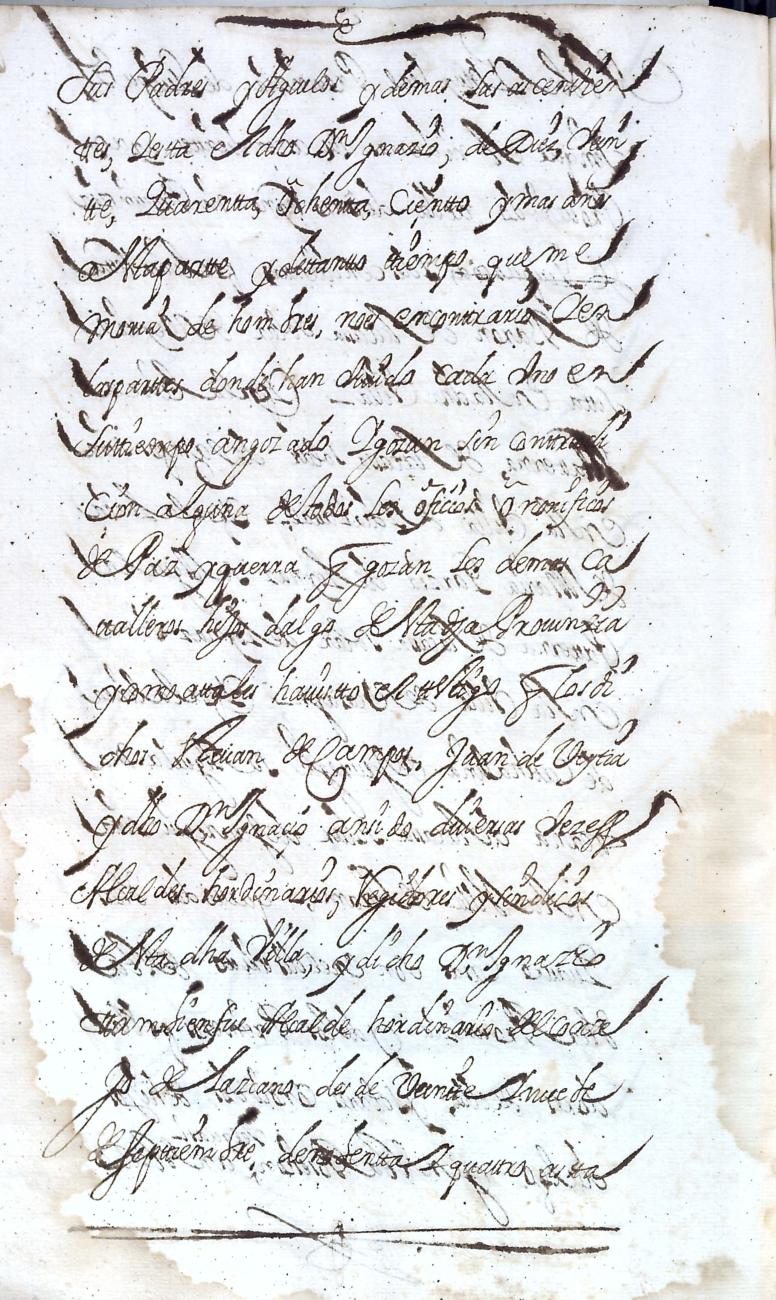 sus Padres y Aguelos y demas sus ascendien
ttes, Y esta el dho Dn Ygnazio, de Diez, Vein
tte, Quarentta, Ochenta, Cientto y mas años
a estaparte y de tantto tiempo que me
moria de hombres, no es encontrario Y en
las parttes donde han viuido cada Vno en
su ttiempo an gozado Y gozan sin contradi
cion alguna de todos los oficios Onorificos
de Paz y guerra q gozan los demas Ca
ualleros hijos dalgo de esta dha Prouinzia
y como attales hauisto el testigo q los di
chos Esteuan de Campos, Juan de Veytia
y dho Dn Ygnacio an sido diuersas Vezes
Alcaldes hordinarios, Regidores y sindicos
de esta dha Villa, y dicho Dn Ygnazio
ttambien fue Alcalde hordinario del conce
jo de Lazcano desde Veintte Y nueue
de septiembre de nobenta Y quattro asta